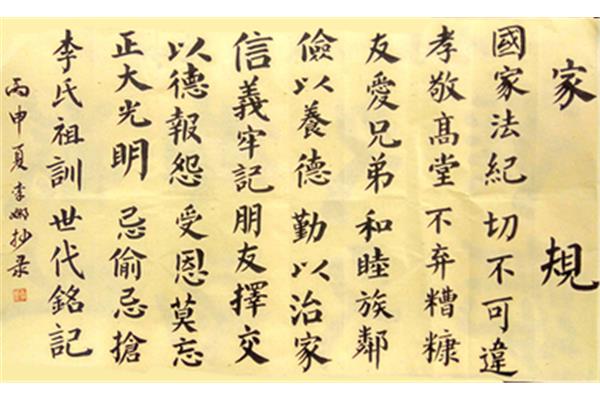 家規
國家法紀 切不可違
孝敬髙堂 不弃糟糠
友愛兄弟 和睦族鄰
儉以養德 勤以治家
信義牢記 朋友擇交
以德報怨 受恩莫忘
正大光明 忌偷忌搶
李氏祖訓 世代銘記
丙申夏李娜抄录